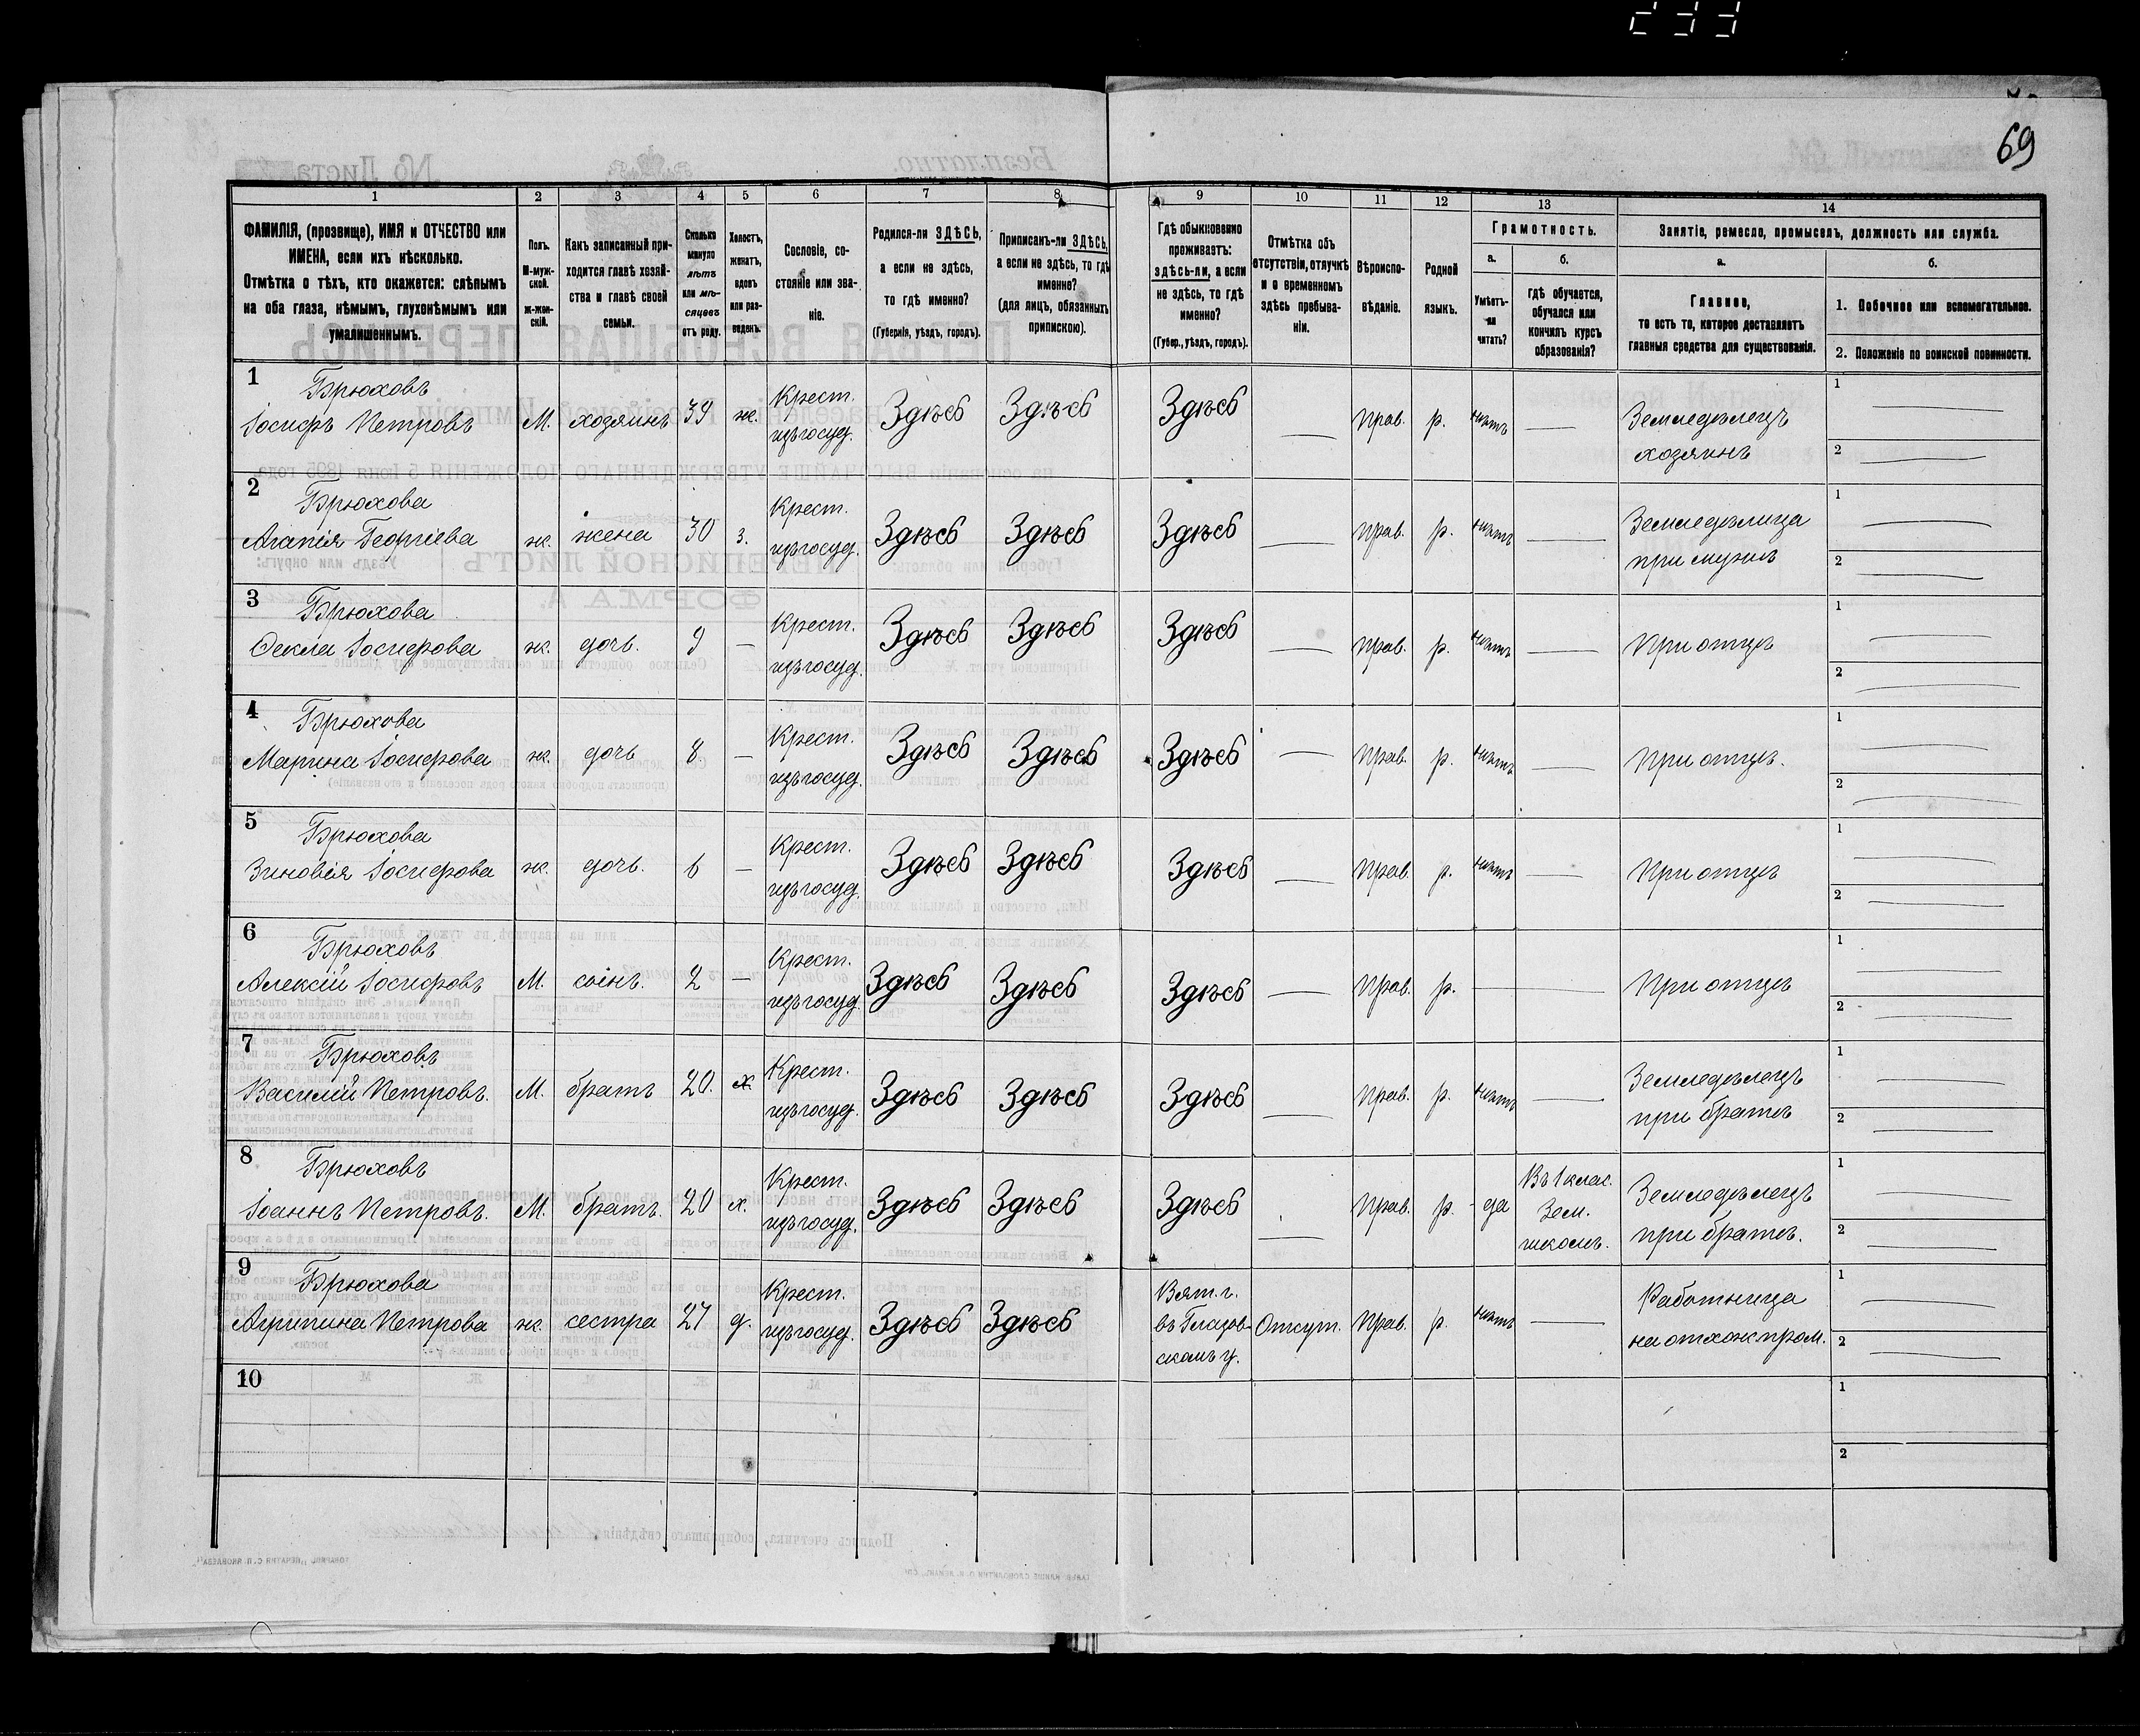 69
1 2 3 4 5 6 7 8 9 10 11 12 13 14
ФАМИЛІЯ, (прозвище), ИМЯ и ОТЧЕСТВО или
ИМЕНА, если ихъ нѣсколько.
Отмѣтка о тѣхъ, кто окажется: слѣпымъ
на оба глаза, нѣмымъ, глухонѣмымъ или
умалишеннымъ.
Полъ.
М-муж-
ской.
ж-жен-
скій.
Какъ записанный при-
ходится главѣ хозяй-
ства и главѣ своей
семьи.
Сколько
минуло
лѣтъ
или мѣ-
сяцевъ
отъ роду.
Холостъ,
женатъ,
вдовъ
или раз-
веденъ.
Сословіе, со-
стояніе или зва-
ніе.
Родился-ли ЗДѢСЬ,
а если не здѣсь,
то гдѣ именно?
(Губернія, уѣздъ, городъ).
Приписанъ-ли ЗДѢСЬ,
а если не здѣсь, то гдѣ
именно?
(для лицъ, обязанныхъ
припискою).
Гдѣ обыкновенно
проживаетъ:
здѣсь-ли, а если
не здѣсь, то гдѣ
именно?
(Губер., уѣздъ, городъ).
Отмѣтка объ
отсутствіи, отлучкѣ
и о временномъ
здѣсь пребыва-
ніи.
Вѣроиспо-
вѣданіе.
Родной
языкъ.
Грамотность.
а. б.
Умѣетъ-
ли
читать?
гдѣ обучается,
обучался или
кончилъ курсъ
образованія?
Занятіе, ремесло, промыселъ, должность или служба.
а. б.
Главное,
то есть то, которое доставляетъ
главныя средства для существованія.
1. Побочное или вспомогательное.
2. Положеніе по воинской повинности.
1 Брюховъ Крест. 1
Іосифъ Петровъ М. хозяинъ 39 ж. изъ госуд. Здѣсь Здѣсь Здѣсь — прав. р. нѣтъ — Земледѣлецъ
хозяинъ 2
2 Брюхова Крест. 1
Агапія Георгіева ж. жена 30 з. изъ госуд. Здѣсь Здѣсь Здѣсь — прав. р. нѣтъ — Земледѣлица
при мужѣ 2
3 Брюхова Крест. 1
Ѳекла Іосифова ж. дочь. 9 — изъ госуд. Здѣсь Здѣсь Здѣсь — прав. р. нѣтъ — При отцѣ
2
4 Брюхова Крест. 1
Марина Іосифова ж. дочь 8. — изъ госуд. Здѣсь Здѣсь Здѣсь — прав. р. нѣтъ — При отцѣ.
2
5 Брюхова Крест. 1
Зиновія Іосифова ж. дочь. 6 — изъ госуд. Здѣсь Здѣсь Здѣсь — прав. р. нѣтъ — При отцѣ
2
6 Брюховъ Крест. 1
Алексій Іосифовъ М. сынъ. 2 — изъ госуд. Здѣсь Здѣсь Здѣсь — прав. р. — При отцѣ
2
7 Брюховъ Крест. 1
Василій Петровъ. М. братъ 20. х. изъ госуд. Здѣсь Здѣсь Здѣсь — прав. р. нѣтъ — Земледѣлецъ
при братѣ 2
8 Брюховъ Крест. Въ 1 клас. 1
Іоаннъ Петровъ. М. братъ. 20 х. изъ госуд. Здѣсь Здѣсь Здѣсь — прав. р. да Зем. Земледѣлецъ
школѣ. при братѣ. 2
9 Брюхова Крест. Вят. г. Работница 1
Агрипина Петрова ж. сестра 27 д. изъ госуд. Здѣсь Здѣсь въ Глазов- Отсут. прав. р. нѣтъ — на отхож пром. 2
скомъ у.
10 1
2